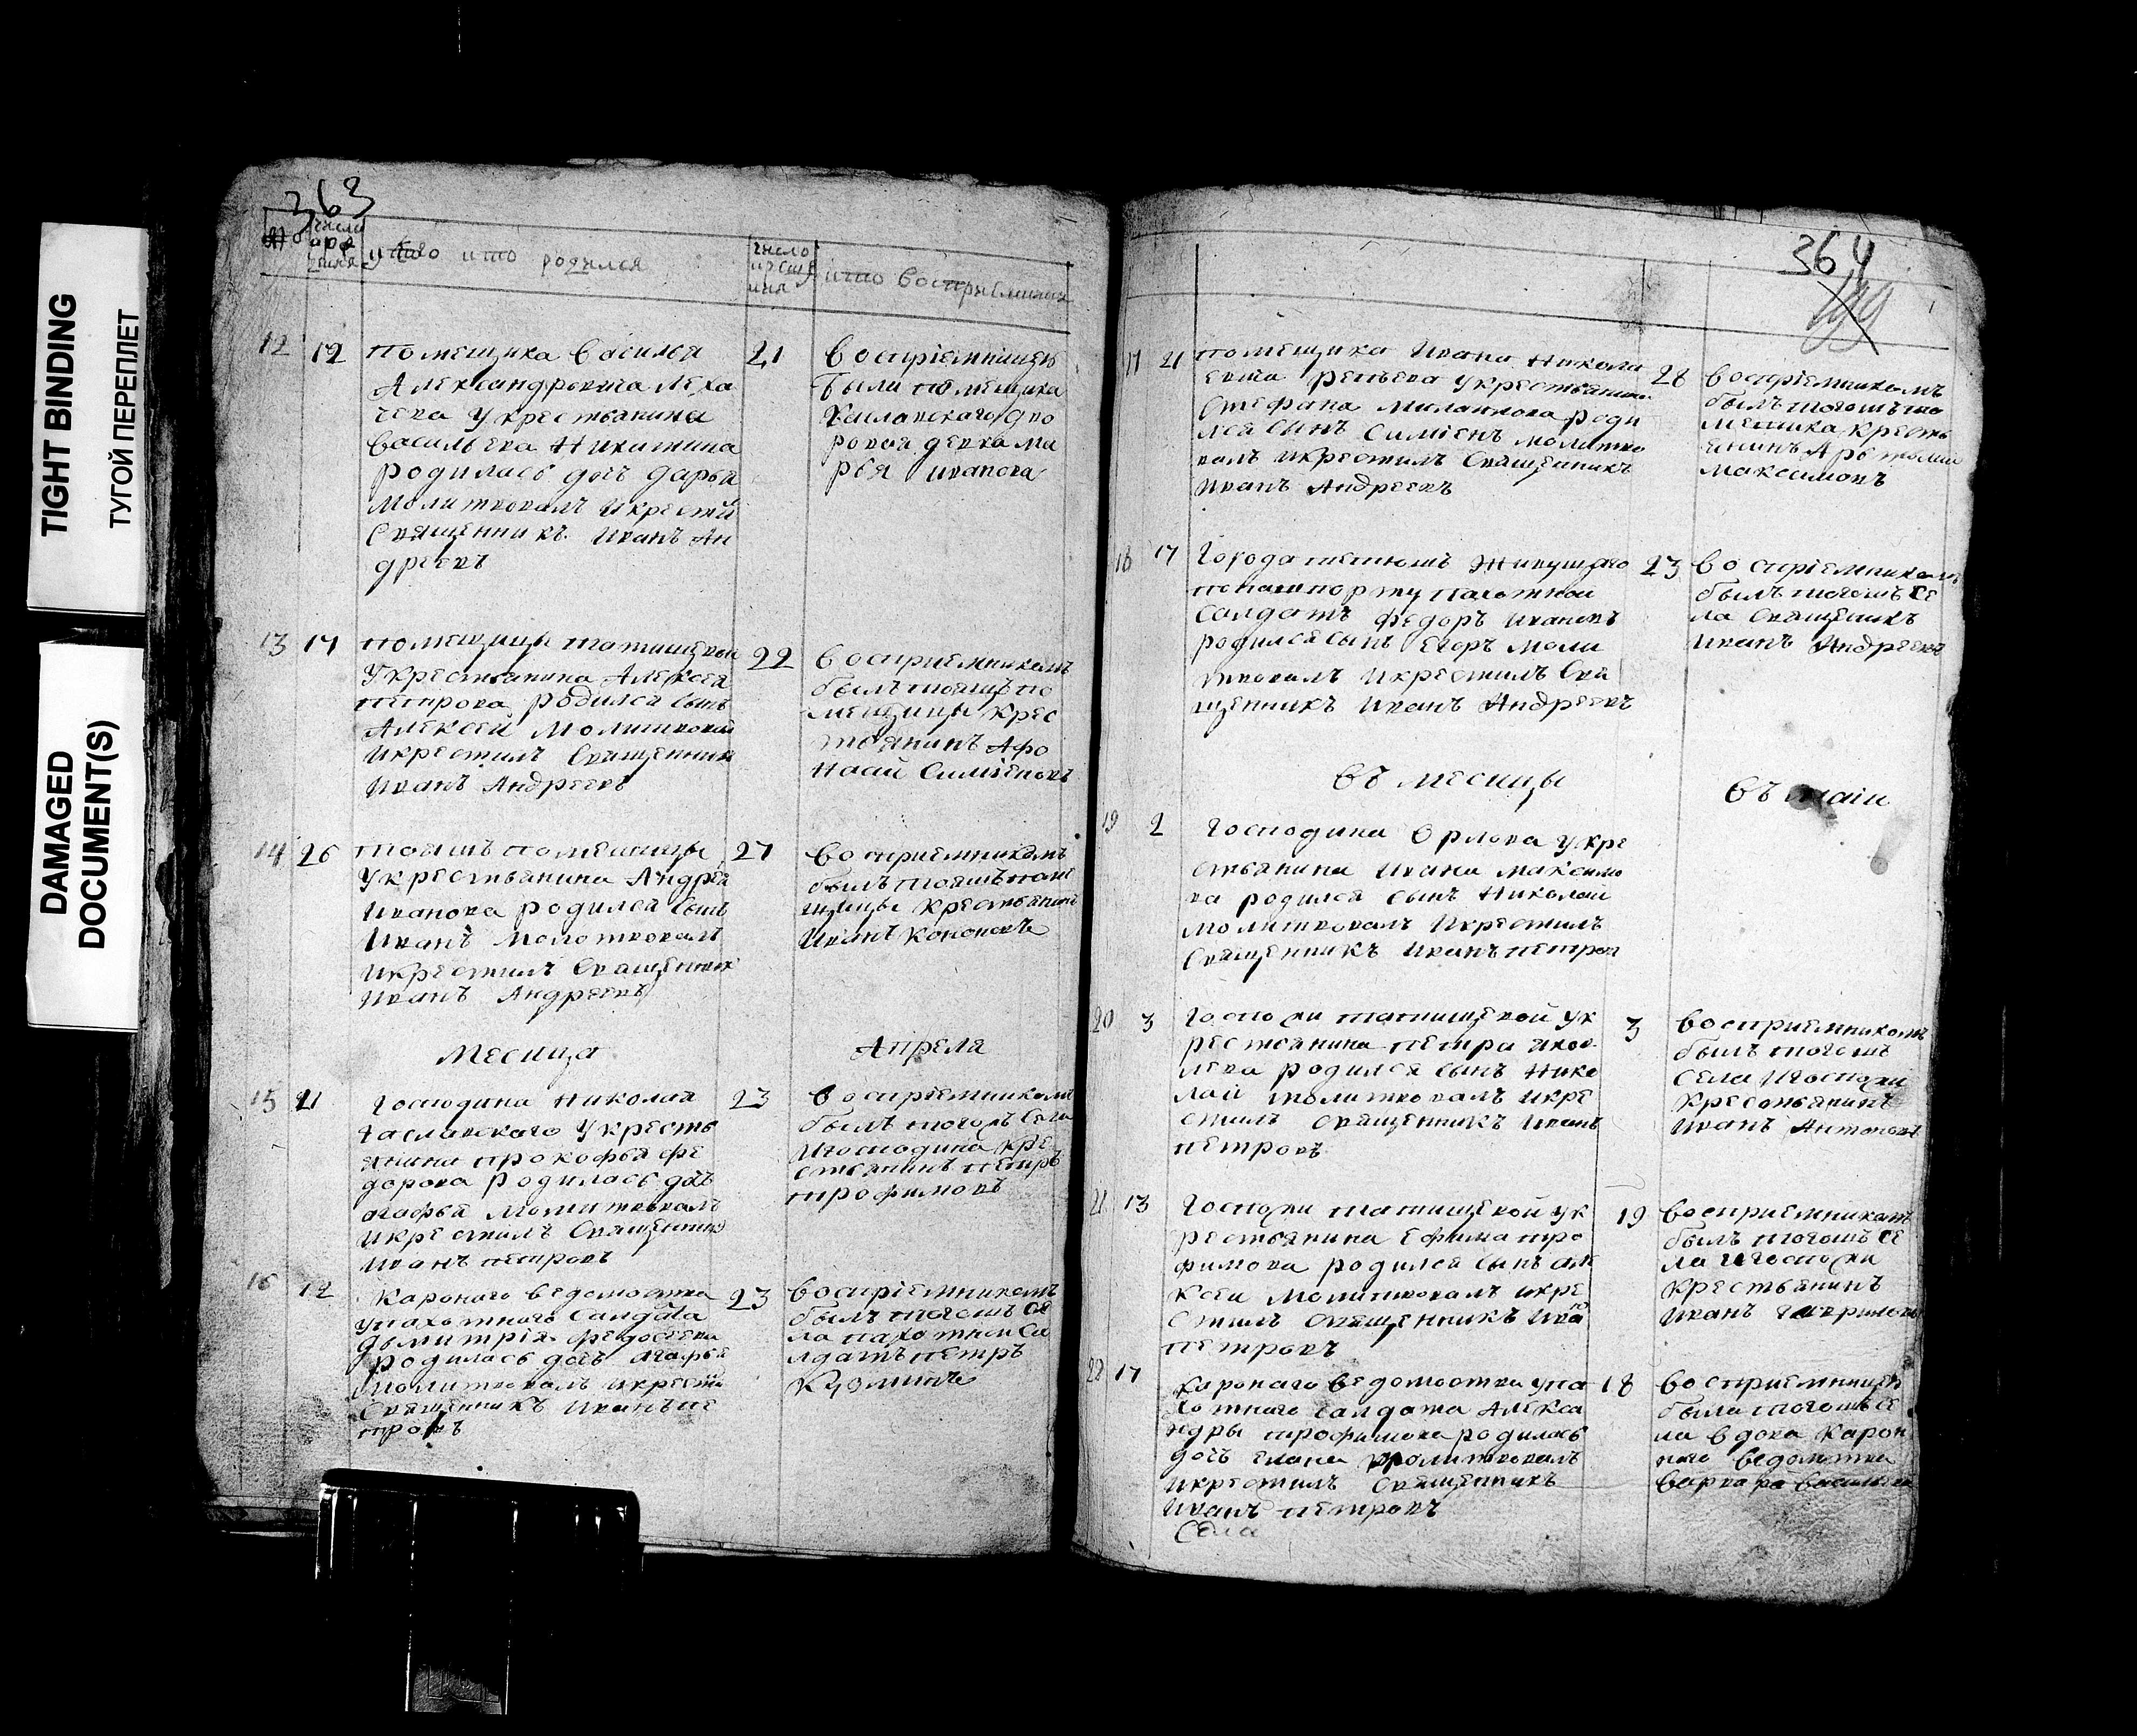 TIGHT BINDING
ТУГОЙ ПЕРЕПЛЕТ
DAMAGED
DOCUMENT(S)
363
у кого кто родился
число
кто восприемник
12 12 помещика василья
Александровича леха
чева у крестьянина
василья Никитина
родилась дочь дарья
молитвовалъ и крести
Священникъ Иванъ Ан
дреевъ
21 восприемницею
была помещика
дво
ровая девка ма
рья иванова
13 17 помещицы татищевой
у крестьянина Алексея
петрова родился сынъ
Алексей молитвовал
и крестилъ Священник
Иванъ Андреевъ
22 восприемникомъ
былъ тояжъ по
мещицы крес
тьянинъ Афо
насий Симиеновъ
14 26 тояжъ помещицы
у крестьянина Андрея
Иванова родился сынъ
Иванъ молотвовалъ
и крестилъ Священник
Иванъ Андреевъ
27 восприемникомъ
былъ тояжъ поме
щицы крестьянин
Иванъ Кононовъ
Месица Апреля
15 21 господина Николая
у кресть
янина прокофья фе
дорова родилась дочь
агафья молитвовалъ
и крестилъ Священникъ
Иванъ петровъ
23 восприемникомъ
былъ тогожъ села
и господина кре
стьянинъ петръ
трофимовъ
16 12 каронаго ведомства
у пахотнаго салдата
дьмитрия федосеева
родилась дочь Агафья
молитвовалъ и крести
Священникъ Иванъ пе
тровъ
23 восприемникомъ
былъ тогожъ се
ла пахотной са
лдатъ петръ
Кузминъ
364
17 21 помещика Ивана Никола
евича репьева у крестьянина
Стефана роди
лся сынъ Симиенъ молитво
валъ и крестилъ Священикъ
Иванъ Андреевъ
28 восприемникомъ
былъ тогожъ по
мещика кресть
янинъ
Максимовъ
18 17 города живущаго
по пашпорту пахотной
салдатъ федоръ Ивановъ
родился сынъ Егоръ моли
твовалъ и крестилъ Свя
щенникъ Иванъ Андреевъ
23 восприемникомъ
былъ тогожъ се
ла Священикъ
Иванъ Андреевъ
въ месицы въ маiи
19 2 господина Орлова у кре
стьянина Ивана максимо
ва родился сынъ Николай
молитвовалъ и крестилъ
Священникъ Иванъ петров
20 3 госпожи татищевой у к
рестьянина петра яков
лева родился сынъ Нико
лай молитвовалъ и кре
стилъ священникъ Иванъ
петровъ
3 восприемникомъ
былъ тогожъ
села и госпожи
крестьянинъ
Иванъ Антоновъ
21 13 госпожи татищевой у к
рестьянина Ефима тро
фимова родился сынъ але
ксей молитвовалъ и кре
стилъ священникъ Ива
петровъ
19 восприемникомъ
былъ тогожъ се
ла и госпожи
крестьянинъ
Иванъ гавриловъ
22 17 каронаго ведомства у па
хотнаго салдата Алекса
ндры трофимова родилась
дочь Елена молитвовалъ
и крестилъ Священникъ
Иванъ петровъ
Села
18 восприемницею
была тогожъ се
ла вдова карон
наго ведомства
варвара васильева